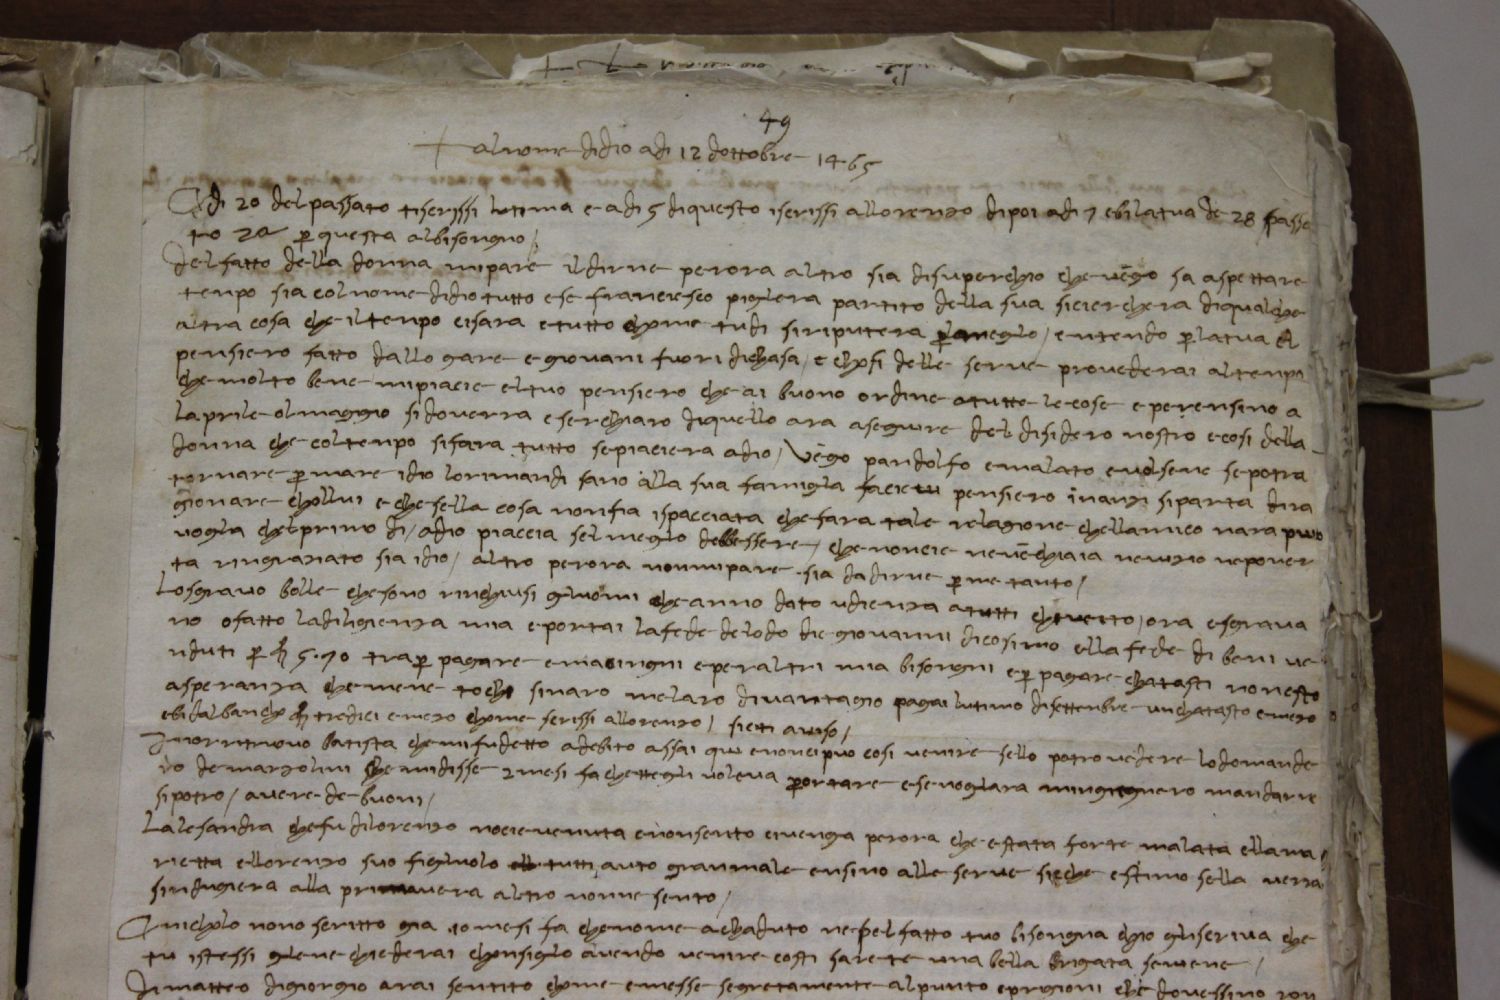 49
+ al nome didio adi 12 dottobre 1465
Adi 20 del passato tiscrissi lutima e adi 5 di questo iscrissi allorenzo dipoi adi 7 ebi la tua de 28 passa
to 2a per questa al bisongno /
del fatto della donna mi pare il dirne perora altro sia disuperchio che vego sa aspettare
tenpo sia col nome didio tutto e se franciesco piglera partito della sua sicierchera di qualche
altra cosa che il tenpo ci sara e tutto chome tu di si riputera per lo meglo / entendo per la tua el
pensiero fatto dallogare e giovani fuori di chasa / e chosi delle serve provederai al tenpo
che molto bene mi piacie el tuo pensiero che ai buono ordine a tutte le cose e per ensino a
laprile ol maggio si doverra esere chiaro di quello ara a seguire del disidero nostro e cosi della
donna che col tenpo si fara tutto se piaciera adio / Vego pandolfo e malato e volsene se potra
tornare per mare idio lo rimandi sano alla sua famigla facietu pensiero inanzi si parta di ra
gionare chollui e che sella cosa non fia ispacciata che fara tale relagione che llamico nara piu
vogla chel primo di / adio piaccia sel meglo debbessere / che non cie ne vechiaia ne vizio ne pover
ta ringraziato sia idio / altro perora non mi pare sia da dirne per me tanto /
Lo sgravo bolle che sono rinchiusi gluomini che anno dato udienza a tutti e chuerto / ora e sgrava
no o fatto la diligienza mia e portai la fede delodo di giovanni di cosimo ella fede di beni ve
nduti per 570 tra per pagare e macingni e per altri mia bisongni e per pagare chatasti non esto
a speranza che mene tochi sinaro melaro di vantagio pagai lutimo di settenbre un chatasto e mezo
ebi dal bancho tredici e mezo chome scrissi allorenzo / sieti aviso /
I non ritruovo batista che mi fu detto a debito assai qui e non ci puo cosi venire sello potro vedere lo domande
ro de marzolini che mi disse 2 mesi fa che ttegli voleva portare e se no glara mingiegnero mandarne
si potro / avere de buoni /
Lalesandra che fu di lorenzo no cie venuta e non sento ci venga perora che e stata forte malata ella ma
rietta ellorenzo suo figluolo tutti auto gran male ensino alle serve sicche estimo sella verra
sindugiera alla primavera altro nonne sento /
A nicholo nono scritto gia 10 mesi fa che nome achaduto ne pel fatto tuo bisongna chio gli scriva che
tu istessi glene chiederai chonsiglo avendo venire costi sarete una bella brigata se viene /
Di matteo di giorgio arai sentito chome e messe segretamente al punto e prigioni che dovessino